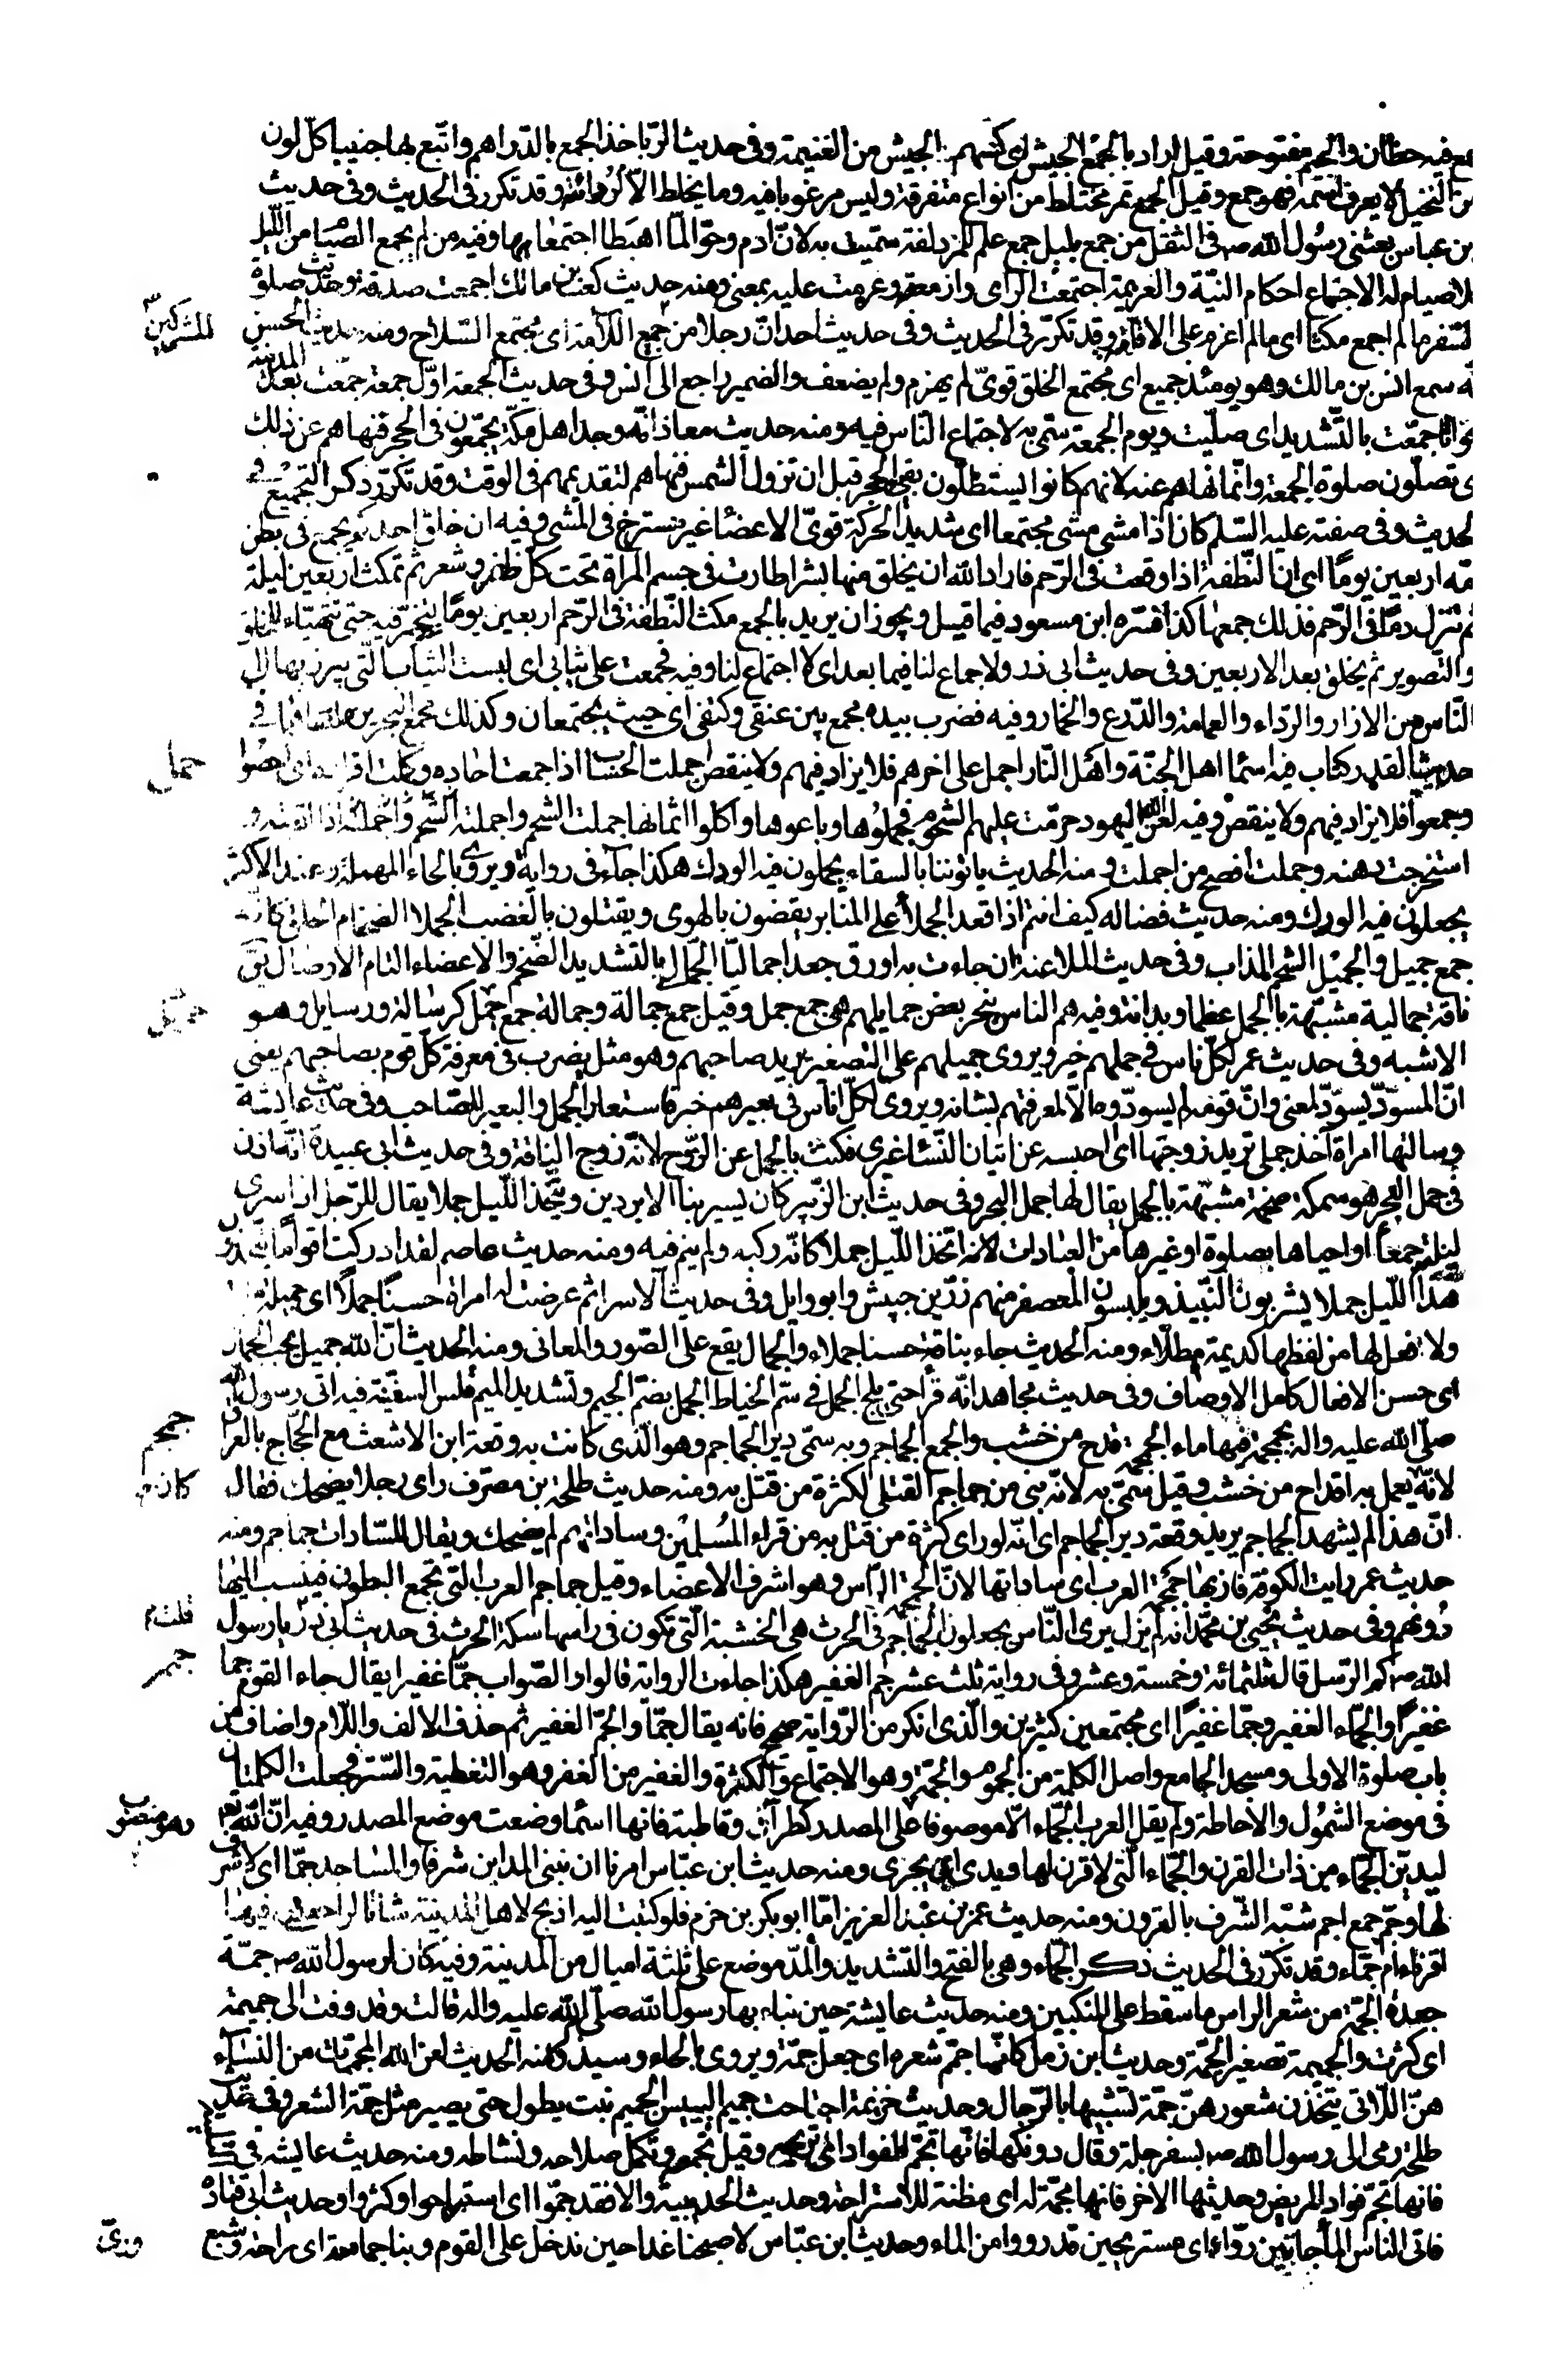 مع فيه حظان والجيم مفتوحة وقيل اراد بالجمع الجيش اى كسهم الجيش من الغنيمة وفى حديث الربا خذ الجمع بالدراهم واتبع بها جنيبا كل لون
من النخيل لا يعرف اسمه فهو جمع وقيل الجمع تمر مختلط من انواع متفرقة وليس مرغوبا فيه وما يخلط الا لرداءته وقد تكرر فى الحديث وفى حديث
بن عباس بعثنى رسول الله ص فى الثقل من جمع بليل جمع علم للمزدلفة سميت به لان ادم وحوا لما اهبطا اجتمعا بها وفيه من لم يجمع الصيام من الليل
فلا صيام له الاجماع احكام النية والعزيمة اجمعت الراى وازمعته وعزمت عليه بمعنى ومنه حديث كعب بن مالك اجمعت صدقه وحديث صلوة
السفر ما لم اجمع مكثا اى ما لم اعزم على الاقامة وقد تكرر فى الحديث وفى حديث احد ان رجلا من جميع اللأمة اى مجتمع السلاح ومنه حديث الحسن
المشركين
انه سمع انس بن مالك وهو يومئذ جميع اى مجتمع الخلق قوى لم يهزم ولم يضعف والضمير راجع الى انس وفى حديث الجمعة اول جمعة جمعت بعد المدينة
بجواثا جمعت بالتشديد اى صليت ويوم الجمعة سمى به لاجتماع الناس فيه ومنه حديث معاذ انه وجد اهل مكة يجمعون فى الحجر فنهاهم عن ذلك
اى تصلون صلوة الجمعة وانما نهاهم عنه لانهم كانوا يستظلون بفىء الحجر قبل ان تزول الشمس فنهاهم لتقديمهم فى الوقت وقد تكرر ذكر التجميع فى
الحديث وفى صفته عليه السلم كان اذا مشى مشى مجتمعا اى شديد الحركة قوى الاعضا غير مسترخ فى المشى وفيه ان خلق احدكم يجمع فى بطن
امه اربعين يوما اى ان النطفة اذا وقعت فى الرحم فاراد الله ان يخلق منها بشرا طارت فى جسم المرأة تحت كل ظفر وشعر ثم تمكث اربعين ليلة
ثم تنزل دما فى الرحم فذلك جمعها كذا فسره ابن مسعود فيما قيل ويجوز ان يريد بالجمع مكث النطفة فى الرحم اربعين يوما يتخمر فيه حتى تتهيأ للخلق
والتصوير ثم يخلق بعد الاربعين وفى حديث ابى ذر ولا جماع لنا فيما بعد اى لا اجتماع لنا وفيه فجمعت على ثيابى اى لبست الثياب التى يبرز بها الى
الناس من الازار والرداء والعمامة والدرع والخمار وفيه فضرب بيده مجمع بين عنقى وكتفى اى حيث يجتمعان وكذلك مجمع البحرين ملتقاهما فى
جمل
حديث القدر كتاب فيه اسما اهل الجنة واهل النار اجمل على اخرهم فلا يزاد فيهم ولا ينقص اجملت الحساب اذا جمعت احاده وكملت افراده اى احصوا
وجمعوا فلا يزاد فيهم ولا ينقص وفيه لعن الله اليهود حرمت عليهم الشحوم فجملوها وباعوها واكلوا اثمانها جملت الشحم واجملته الشحم واجملته اذا اذبته و
استخرجت دهنه وجملت افصح من اجملت ومنه الحديث ياتوننا بالسقاء يجملون فيه الودك هكذا جاء فى رواية ويروى بالحاء المهملة وعند الاكثر
يجعلون فيه الودك ومنه حديث فضاله كيف انتم اذا قعد الجملاء على المنابر يقضون بالهوى ويقتلون بالغضب الجملاء الضخام الخلق كانه
جمع جميل والجميل الشحم المذاب وفى حديث الملاعنة ان جاءت به اورق جعدا جماليا الجمالى بالتشديد الضخم والاعضاء التام الاوصال يق
ناقة جمالية مشبهة بالجمل عظما وبدانة وفيه هم الناس بنحر بعض جمايلهم هى جمع جمل وقيل جمع جمالة وجمالة جمع جمل كرسالة ورسايل وهو
الاشبه وفى حديث عمر لكل ناس فى جملهم خير ويروى جميلهم على التصغير يريد صاحبهم وهو مثل يضرب فى معرفة كل قوم بصاحبهم يعنى
ان المسود يسود لمعنى وان قومه لم يسودوه الا لمعرفتهم بشانه ويروى لكل اناس فى بعيرهم خبر فاستعار الجمل والبعير للصاحب وفى حديث عايشة
وسالتها امراة أخذ جملى تريد زوجها اى احبسه عن اتيان النسا غيرى فكنت بالجمل عن الزوج لانه زوج الناقة وفى حديث ابى عبيدة انه اذن
فى جمل البحر هو سمكة ضخمة مشبهة بالجمل يقال لها جمل البحر وفى حديث ابن الزبير كان يسير بنا الابردين ويتخذ الليل جملا يقال للرجل اذا سرى
ليلته جمعا او احياها بصلوة او غيرها من العبادات لانه اتخذ الليل جملا كانه ركبه ولم ينم فيه ومنه حديث عاصم لقد ادركت اقواما يتخذون
هذا الليل جملا يشربون النبيذ ويلبسون المعصفر منهم زر بن حبيش وابو وايل وفى حديث الاسرا ثم عرضت له امراة حسنا جملا اى جميلة
ولا افعل لها من لفظها كديمة هطلاء ومنه الحديث جاء بناقة حسنا جملاء والجمال يقع على الصور والمعانى ومنه الحديث ان الله جميل يحب الجمال
اى حسن الافعال كامل الاوصاف وفى حديث مجاهد انه قرأ حتى يلج الجمل فى سم الخياط الجمل بضم الجيم وتشديد الميم قلس السفينة فيه اتى رسول الله
جمجم
صلى الله عليه واله بجمجمة فيها ماء الجمجمة قدح من خشب والجمع الجماجم وبه سمى دير الجماجم وهو الذى كانت به وقعة ابن الاشعث مع الحجاج بالعراق
لانه يعمل به اقداح من خشب وقيل سمى به لانه بنى من جماجم القتلى لكثرة من قتل به ومنه حديث طلحة بن مصرف راى رجلا يضحك فقال
كان
ان هذا لم يشهد الجماجم يريد وقعة دير الجماجم اى انه لو راى كثرة من قتل به من قراء المسلمين وساداتهم لم يضحك ويقال للسادات جماجم ومنه
حديث عمر ايت الكوفة فان بها جمجمة العرب اى ساداتها لان الجمجمة الراس وهو اشرف الاعضاء وقيل جماجم العرب التى تجمع البطون فينسب اليها
دونهم وفى حديث يحيى بن محمد انه لم يزل يرى الناس يجعلون الجماجم فى الحرث هى الخشبة التى تكون فى راسها سكة الحرث فى حديث ابى ذر يا رسول
قلت
الله ص كم الرسل قال ثلثمائة وخمسة وعشر وفى رواية ثلث عشر جم الغفير هكذا جاءت الرواية قالوا والصواب جما غفيرا يقال جاء القوم جما
غفيرا والجماء الغفير وجما غفيرا اى مجتمعين كثيرين والذى انكر من الرواية صحيح فانه يقال جما والجم الغفير ثم حذف الالف واللام واضاف من
باب صلوة الاولى ومسجد الجامع واصل الكلمة من الجموم والجمة وهو الاجتماع والكثرة والغفير من الغفر وهو التغطية والستر فجعلت الكلمتان
فى موضع الشمول والاحاطة ولم يقل العرب الجماء الا موصوفا على المصدر كطرا وقاطبة فانها اسما وضعت موضع المصدر وفيه ان الله تعم
وهو منصوب
ليدين الجماء من ذات القرن والجماء التى لا قرن لها ويدى اى يجزى ومنه حديث ابن عباس امرنا ان نبنى المداين شرفا والمساجد جما اى لا شرف
لها وجم جمع اجم شبه الشرف بالقرون ومنه حديث عمر بن عبد العزيز اما ابو بكر بن حزم فلو كتبت اليه اذبح لاهل المدينة شاة لراجعنى فيها
اقرناء ام جماء وقد تكرر فى الحديث ذكر الجماء وهى بالفتح والتشديد والمد موضع على ثلثة اميال من المدينة وفيه كان لرسول الله ص جمة
جعدة الجمة من شعر الراس ما سقط على المنكبين ومنه حديث عايشة حين بناء بها رسول الله صلى الله عليه واله قالت وقد وفت الى جميمة
اى كثرت والجميمة تصغير الجمة وحديث ابن زمل كانما جمم شعره اى جعل جمة ويروى بالحاء وسيذكر ومنه الحديث لعن الله المجممات من النساء
هن اللاتى يتخذن شعورهن جمة تشبيها بالرجال وحديث خزيمة اجتاحت جميم اليبيس الجميم نبت يطول حتى يصير مثل جمة الشعر وفى حديث
طلحة رمى الى رسول الله ص بسفرجلة وقال دونكها فانها تجم الفواد اى تريحه وقيل تجمعه وتكمل صلاحه ونشاطه ومنه حديث عايشه فى التلبينة
فانها تجم فواد المريض وحديثها الاخر فانها مجمة له اى مظنة للاستراحة وحديث الحديبية والا فقد جموا اى استراحوا وكثروا وحديث ابى قتادة
فاتى الناس الماء جامين رواء اى مستريحين قد رووا من الماء وحديث ابن عباس لاصبحنا غدا حين ندخل على القوم وبنا جمامة اى راحة وشبع
ورى